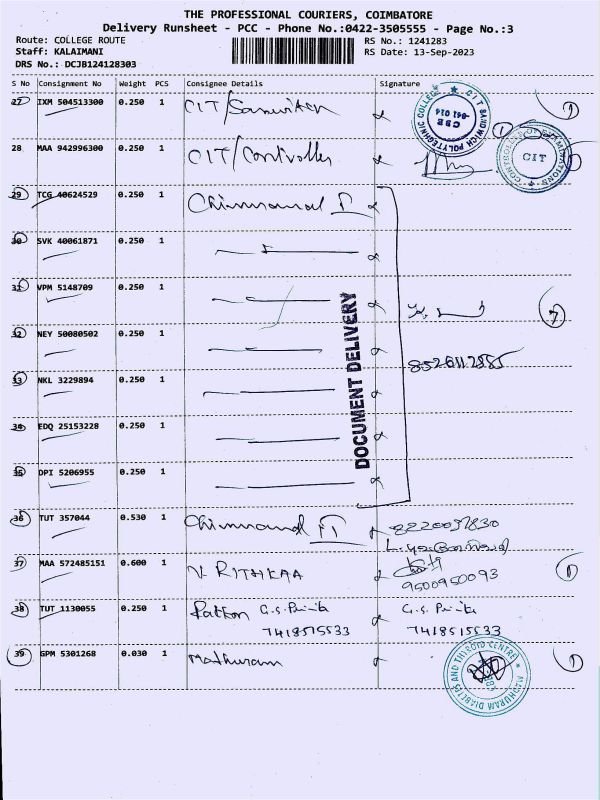 THE PROFESSIONAL COURIERS, COIMBATORE
Delivery Runsheet - PCC - Phone No.:0422-3505555 - Page No.:3
Route: COLLEGE ROUTE RS No.: 1241283
Staff: KALAIMANI RS Date: 13-Sep-2023
DRS No.: DCJB124128303
S No Consignment No Weight PCS Consignee Details Signature
27 IXM 504513300 0.250 1 CIT/Sandwitch
CIT SANDWICH POLYTECHNIC COLLEGE
CBE
641 014
28 MAA 942996300 0.250 1 CIT/Controller
CONTROLLER OF EXAMINATIONS
CIT
29 TCG 40624529 0.250 1
30 SVK 40061871 0.250 1
31 VPM 5148709 0.250 1 7
32 NEY 50080502 0.250 1
33 NKL 3229894 0.250 1 8526112885
34 EDQ 25153228 0.250 1
35 DPI 5206955 0.250 1
DOCUMENT DELIVERY
36 TUT 357044 0.530 1
37 MAA 572485151 0.600 1 V. RITHIKAA 9500950093 1
38 TUT 1130055 0.250 1 G.S. G.S.
7418515533 7418515533
39 GPM 5301268 0.030 1 Mathuram 1
MADHURAM DIABETES AND THYROID CENTRE